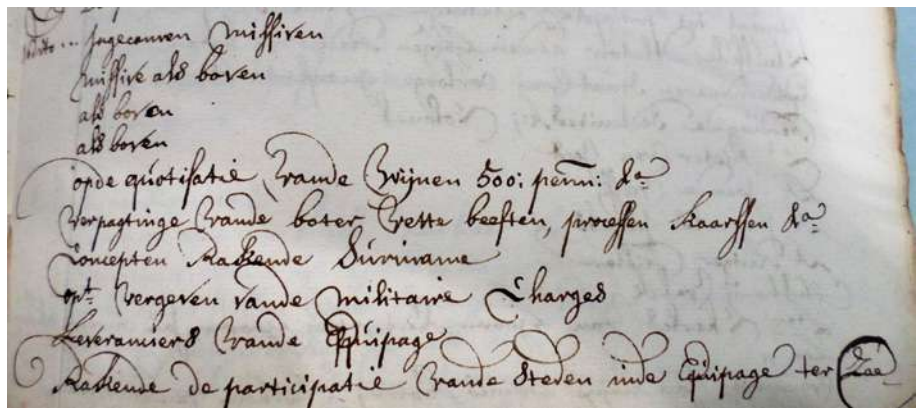 dito ... Ingecomen Missiven
Missive als boven
als boven
als boven
op de quotisatie vande Wijnen 500: penn: &a
Verpagtinge vande boter vette beesten, processen Kaarssen &a
Concepten Rakende Suriname
opt. vergeven vande Militaire Charges
Leveranciers vande Equipage
Rakende de participatie vande Steden inde Equipage ter Zee